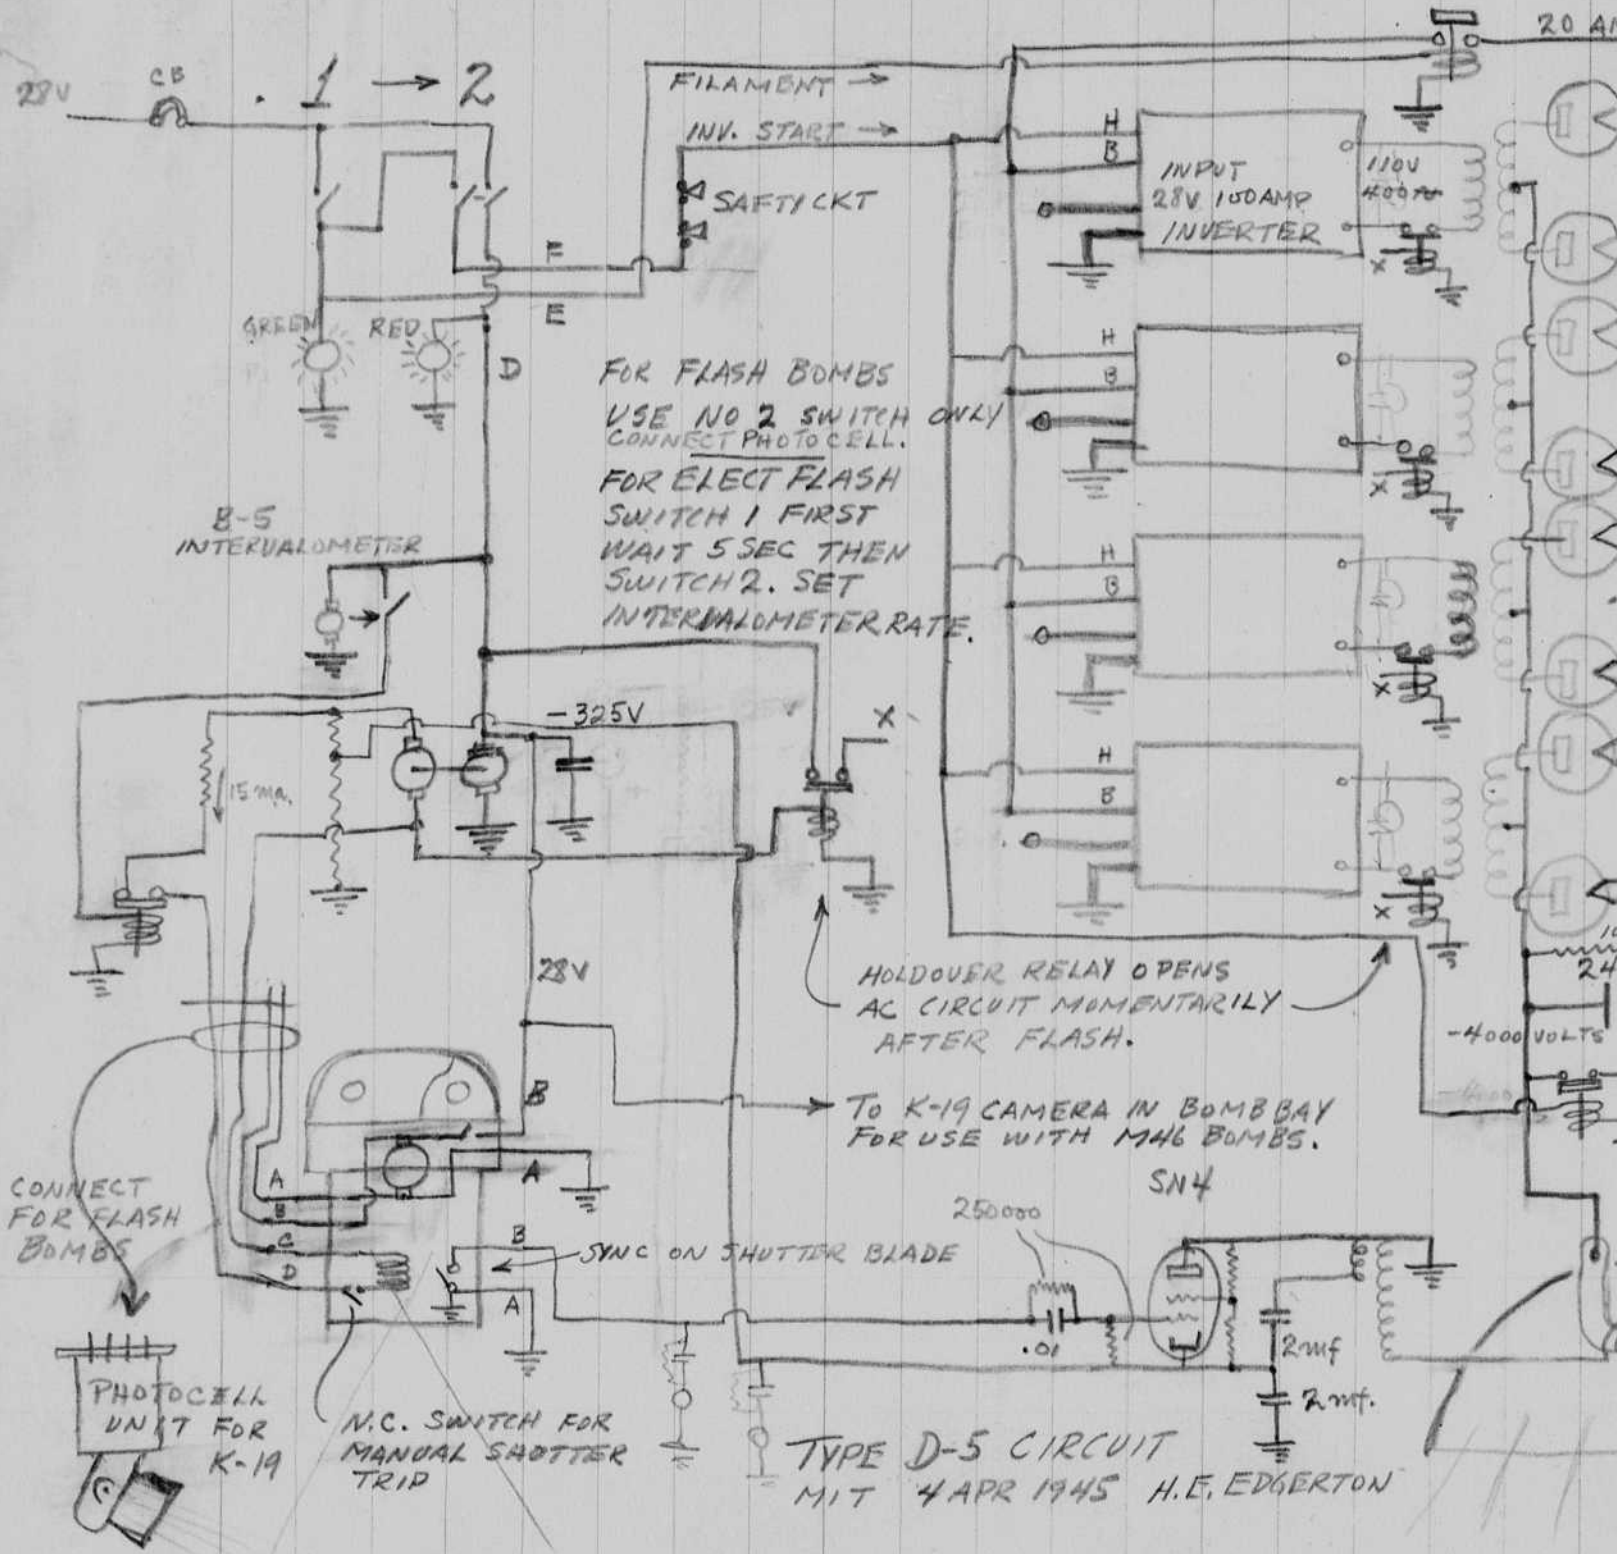 28V
CB
1 → 2
FILAMENT →
INV. START →
SAFTY CKT
20
H
B
INPUT
28V 100AMP
INVERTER
110V
400~
X
F
E
GREEN
RED
D
FOR FLASH BOMBS
USE NO 2 SWITCH ONLY
CONNECT PHOTOCELL.
FOR ELECT FLASH
SWITCH 1 FIRST
WAIT 5 SEC THEN
SWITCH 2. SET
INTERVALOMETER RATE.
H
B
X
B-5
INTERVALOMETER
H
B
X
-325V
X
15 ma.
H
B
X
28V
HOLDOVER RELAY OPENS
AC CIRCUIT MOMENTARILY
AFTER FLASH.
24
-4000 VOLTS
B
TO K-19 CAMERA IN BOMB BAY
FOR USE WITH M46 BOMBS.
A
CONNECT
FOR FLASH
BOMBS
A
B
C
D
SN4
250000
B
SYNC ON SHUTTER BLADE
A
.01
2mf
2mf.
PHOTOCELL
UNIT FOR
K-19
N.C. SWITCH FOR
MANUAL SHUTTER
TRIP
TYPE D-5 CIRCUIT
MIT 4 APR 1945 H.E. EDGERTON